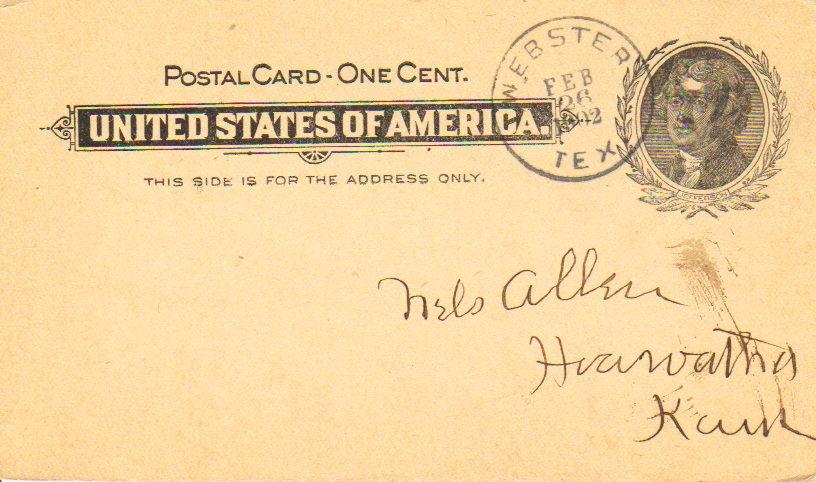 POSTAL CARD - ONE CENT.
UNITED STATES OF AMERICA.
THIS SIDE IS FOR THE ADDRESS ONLY.
WEBSTER
FEB
26
TEX
JEFFERSON
Nels Allen
Hiawatha
Kans